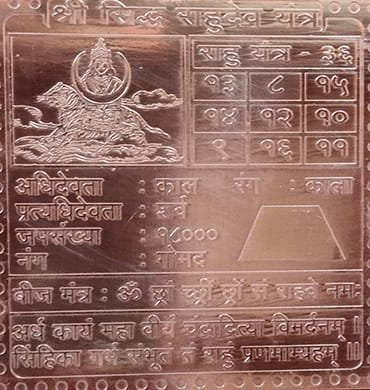 श्री सिद्ध राहुदेव यंत्र
राहु यंत्र - ३६
१३ ८ १५
१४ १२ १०
९ १६ ११
अधिदेवता : काल रंग : काला
प्रत्यधिदेवता : शर्व
जपसंख्या : १८०००
नंग : गोमद
बीज मंत्र : ॐ छ्रां छ्रीं छ्रों सं राहवे नमः
अर्ध कायं महा वीर्यं चंद्रादित्या विमर्दनम् ।
सिंहिका गर्भ संभूत तं राहुं प्रणमाम्यहम् ॥